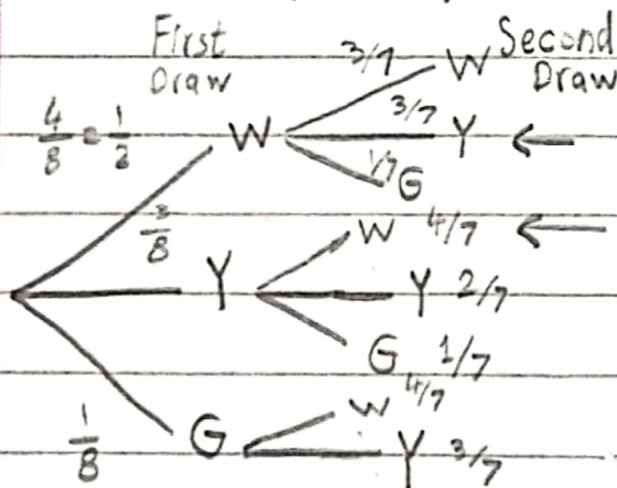 First Draw
Second Draw
4/8 = 1/2 W 3/7 W
3/7 Y ←
1/7 G
3/8 Y W 4/7 ←
Y 2/7
G 1/7
1/8 G W 4/7
Y 3/7